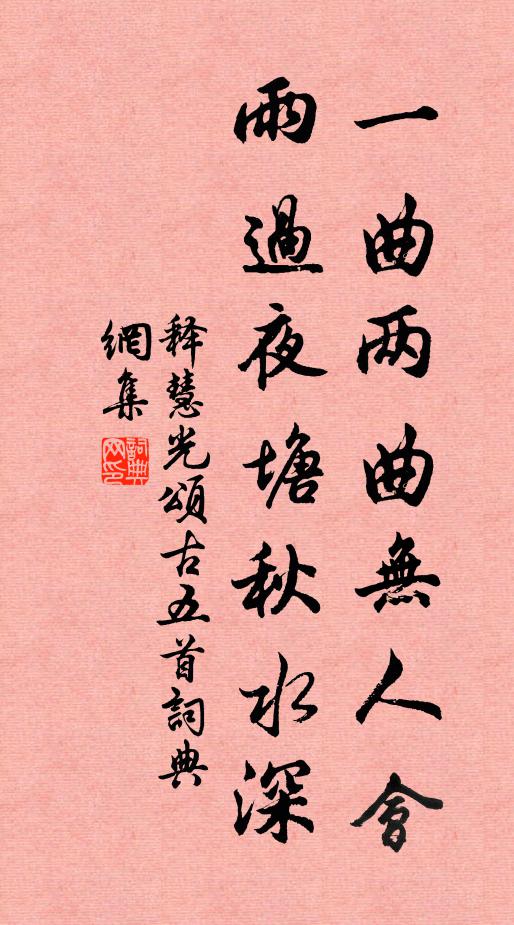 一曲两曲無人會
雨過夜塘秋水深
释慧光頌古五首詞典
網集
詞典
网印